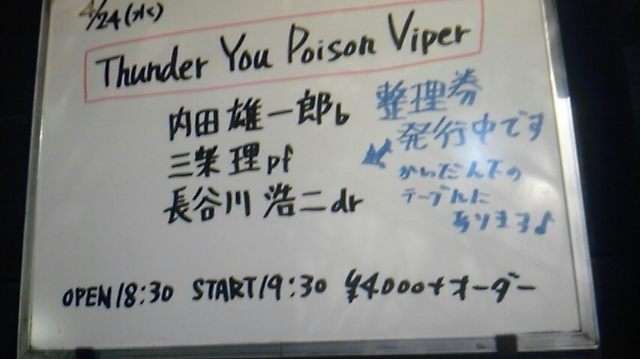 4/24(水)
Thunder You Poison Viper
内田雄一郎b
三柴理pf
長谷川浩二dr
整理券
発行中です
かいだん下の
テーブルに
あります♪
OPEN18:30 START19:30 ¥4000+オーダー